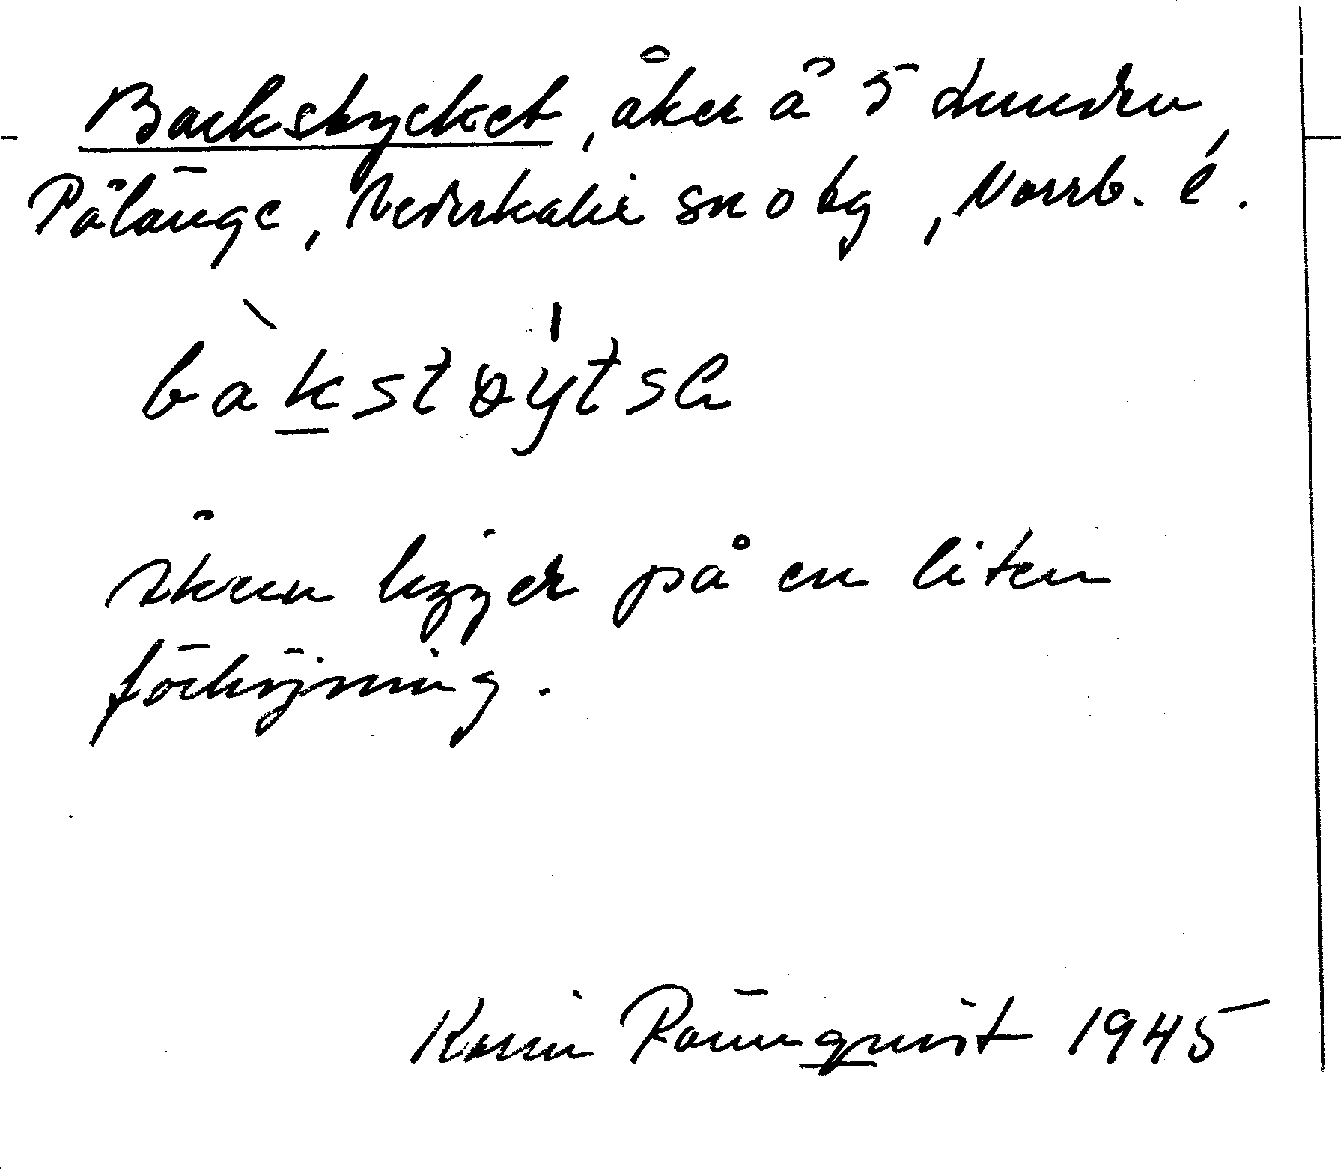 Backstycket, åker å 5 Lundru,
Pålänge, Nederkalix sn o bg, Norrb. l.
bàkstøy̍tsli
åkern ligger på en liten
förhöjning.
Karin 1945